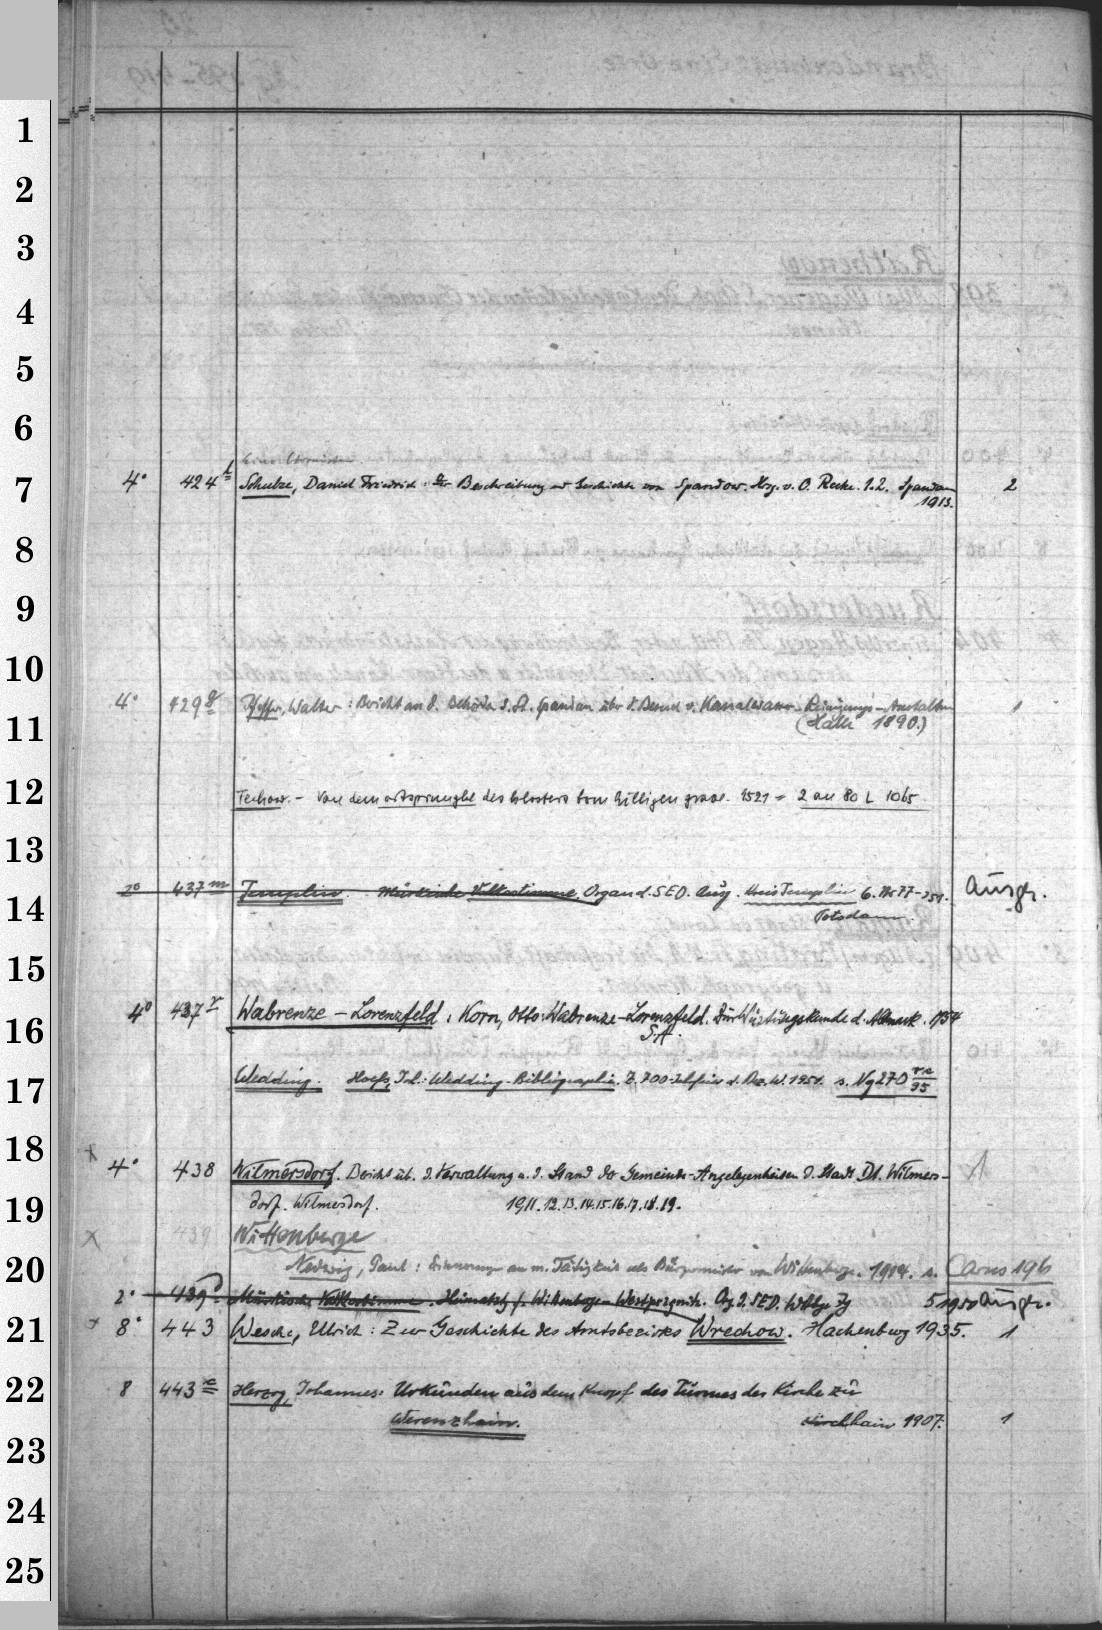 1
2
3
4
5
6
7
4° 424 h Schulze, Daniel Friedrich: Beschreibung Geschichte von Spandow. Hrg. v. O. Recke. 1.2. Spandau 2
1913.
8
9
10
4° 429 g Walter: Bericht an d. Behörde d. St. Spandau über d. Besuch v. Kanalwasser-Reinigungs-Anstalten 1
11
(Halle 1890.)
12
Techow. – Von dem des klosters tom hilligen grave. 1521 = 2 an 80 L 1065
13
14
2° 437 m Templin. Märkische Volksstimme. Organ d. SED. Ausg. Kreis Templin 6. Nr 77-251. Ausgr.
Potsdam.
15
16
4° 437 r Wabrenze – Lorenzfeld: Korn, Otto: Wabrenze-Lorenzfeld. Zur Wüstungskunde d. Altmark. 1954
SA.
17
Wedding. Hoefs, Wedding-Bibliographie. Z. 700-Jahrfeier d. Bez. W. 1951. s. Ng 270 95
18
x 4° 438 Wilmersdorf. Bericht üb. d. Verwaltung u. d. Stand der Gemeinde-Angelegenheiten d. Stadt Dt. Wilmers- 1
19
dorf. Wilmersdorf. 1911. 12. 13. 14. 15. 16. 17. 18. 19.
x 439 Wittenberge
20
Paul: Erinnerungen an m. Tätigkeit als Bürgermeister von Wittenberge. 1914. s. 196
2° 439 Märkische Volksstimme. Heimatztg f. Wittenberge – Westprignitz. Org. d. SED. Wtbge Jg 5.1950 Ausgr.
21
x 8° 443 Wesche, Ullrich: Zur Geschichte des Amtsbezirks Wrechow. Hachenburg 1935. 1
22
8 443 e Herzog, Johannes: Urkunden aus dem Knopf des Turmes der Kirche zu
Werenzhain. Kirchhain 1907. 1
23
24
25